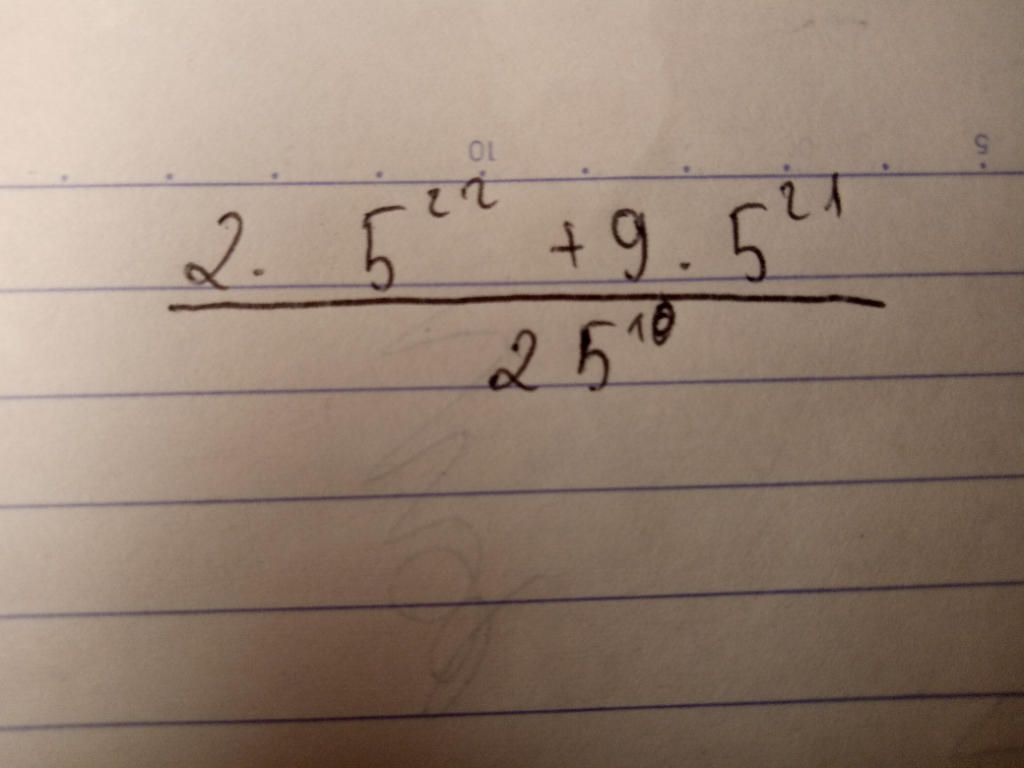 10 5
2. 5²² + 9 . 5²¹
25¹⁰